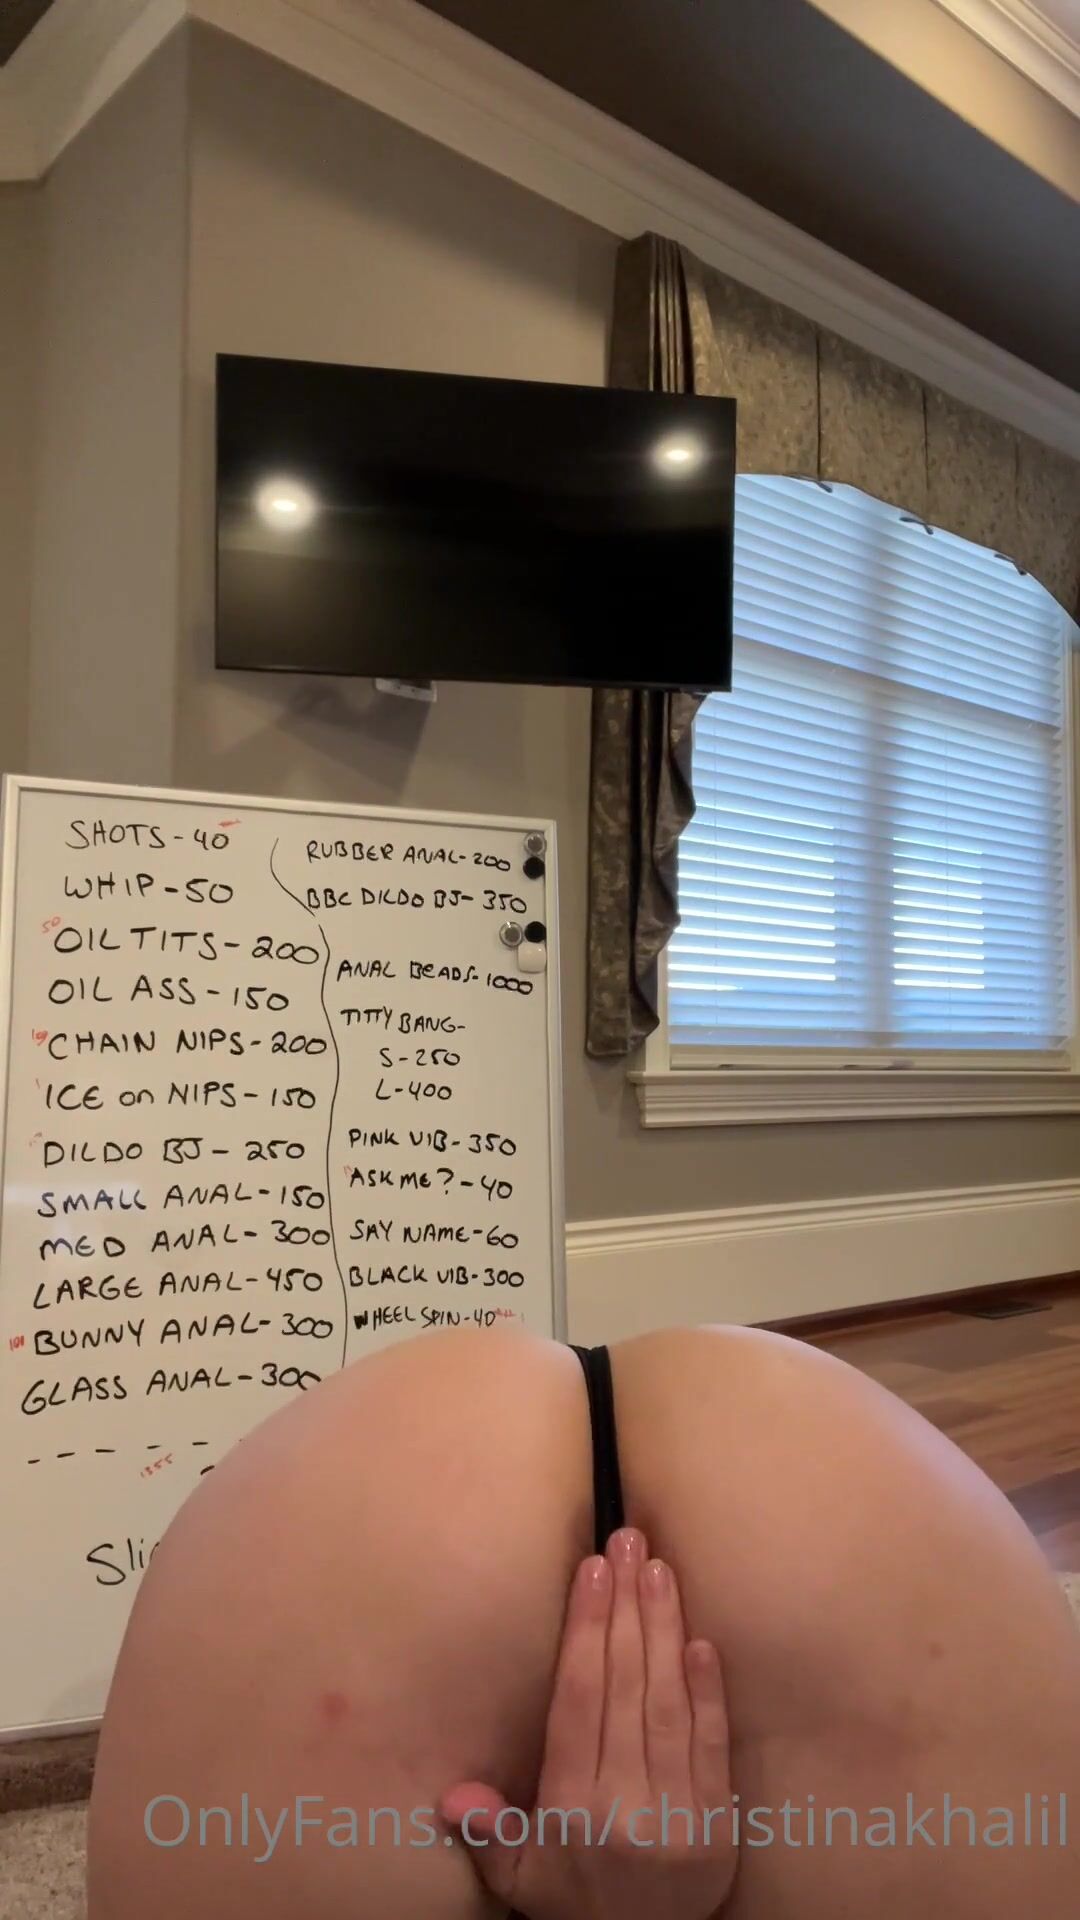 SHOTS-40
WHIP-50
50
OIL TITS-200
OIL ASS-150
CHAIN NIPS-200
ICE on NIPS-150
DILDO BJ-250
SMALL ANAL-150
MED ANAL-300
LARGE ANAL-450
101
BUNNY ANAL-300
GLASS ANAL-300
- - - - -
1355
RUBBER ANAL-200
BBC DILDO BJ-350
ANAL BEADS-1000
TITTY BANG-
S-250
L-400
PINK VIB-350
ASK ME?-40
SAY NAME-60
BLACK VIB-300
WHEEL SPIN-40
OnlyFans.com/christinakhalil